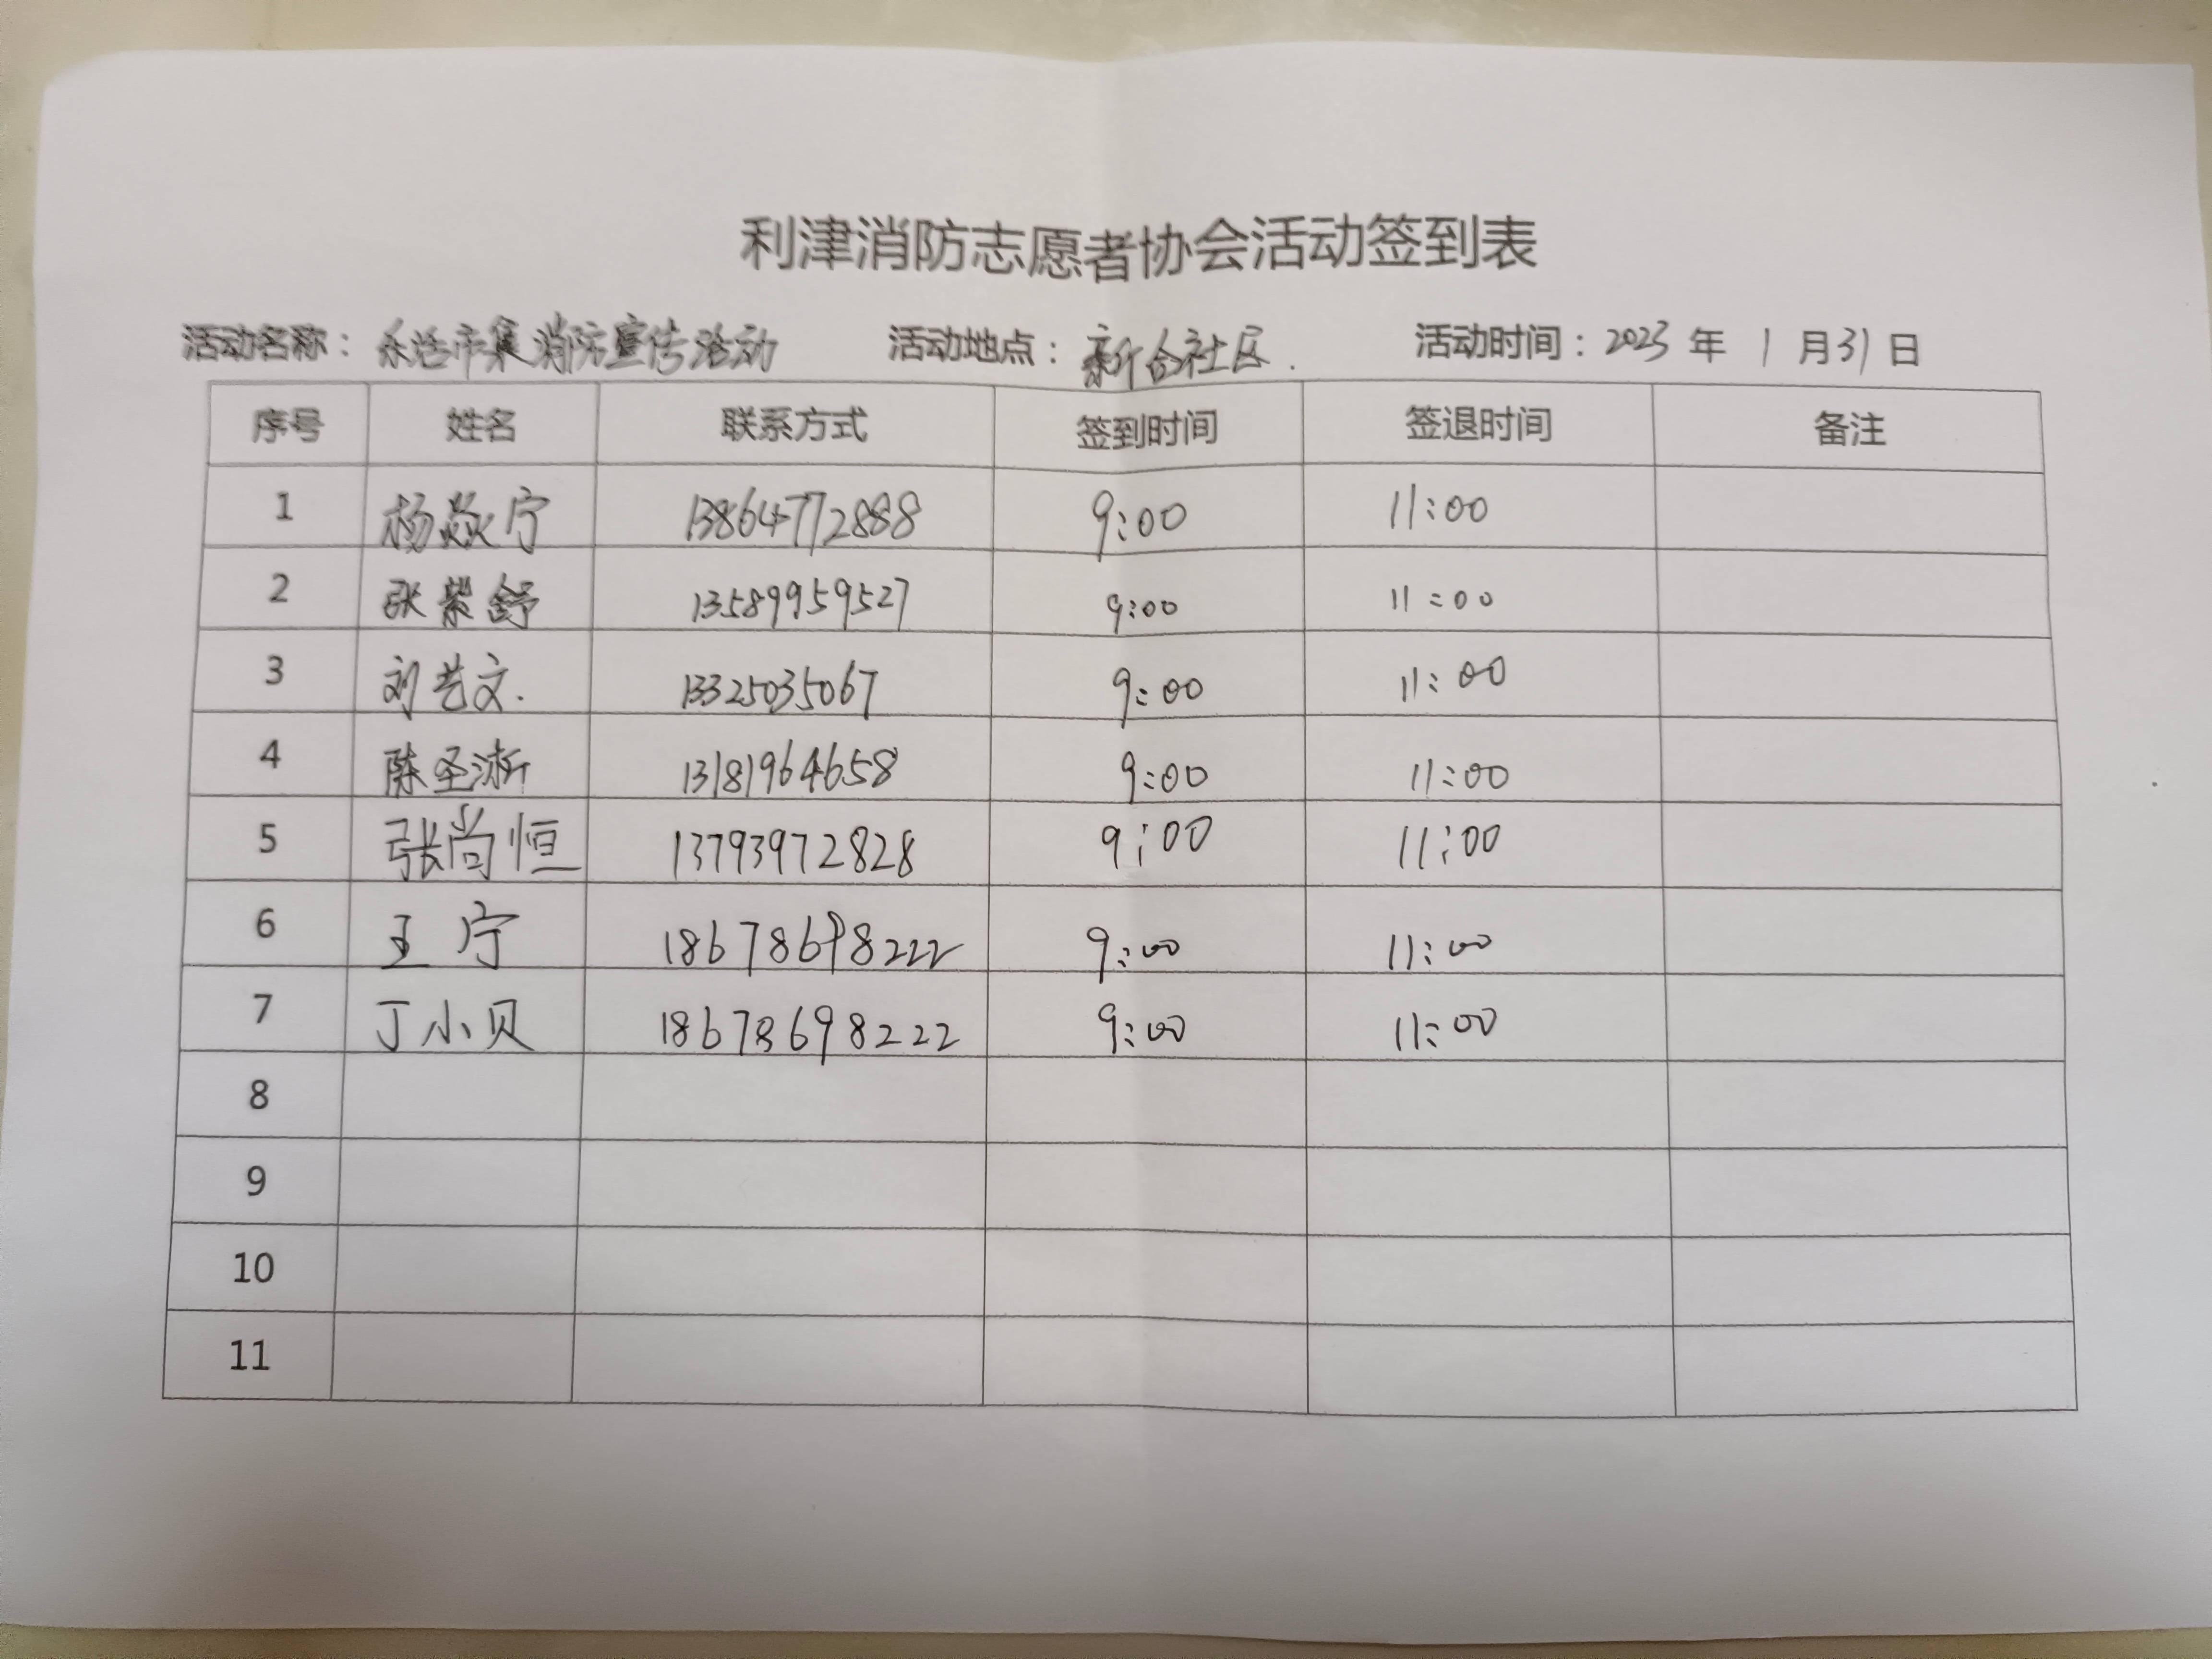 利津消防志愿者协会活动签到表
活动名称：乐活市集消防宣传活动 活动地点：新合社区. 活动时间：2023年1月31日
序号 姓名 联系方式 签到时间 签退时间 备注
1 杨焱宁 13864772888 9:00 11:00
2 张紫舒 13589959527 9:00 11:00
3 刘艺文. 13325035067 9:00 11:00
4 陈圣淅 13181964658 9:00 11:00
5 张尚恒 13793972828 9:00 11:00
6 王宁 18678698222 9:00 11:00
7 丁小贝 18678698222 9:00 11:00
8
9
10
11